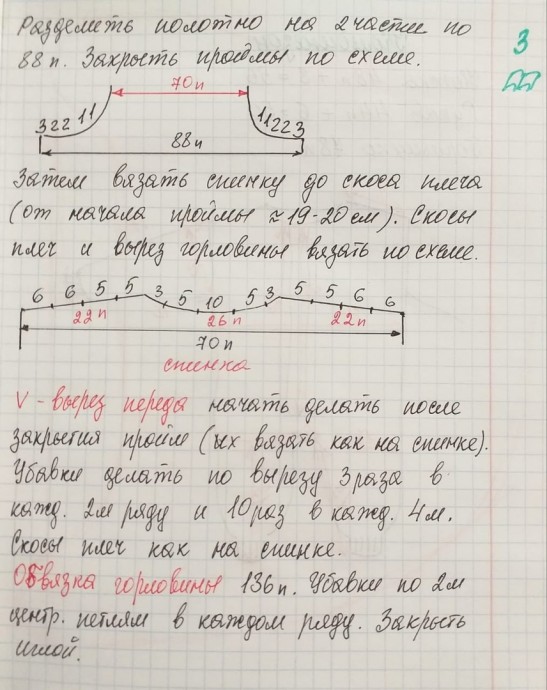 3
Разделить полотно на 2 части по
88 п. Закрыть проймы по схеме.
70 п
3 2 2 1 1
1 1 2 2 3
88 п
Затем вязать спинку до скоса плеча
(от начала проймы ≈ 19-20 см). Скосы
плеч и вырез горловины вязать по схеме.
6 6 5 5 3 5 10 5 3 5 5 6 6
22 п 26 п 22 п
70 п
спинка
V - вырез переда начать делать после
закрытия пройм (их вязать как на спинке).
Убавки делать по вырезу 3 раза в
кажд. 2м ряду и 10 раз в кажд. 4 м.
Скосы плеч как на спинке.
Обвязка горловины 136 п. Убавки по 2м
центр. петлям в каждом ряду. Закрыть
иглой.